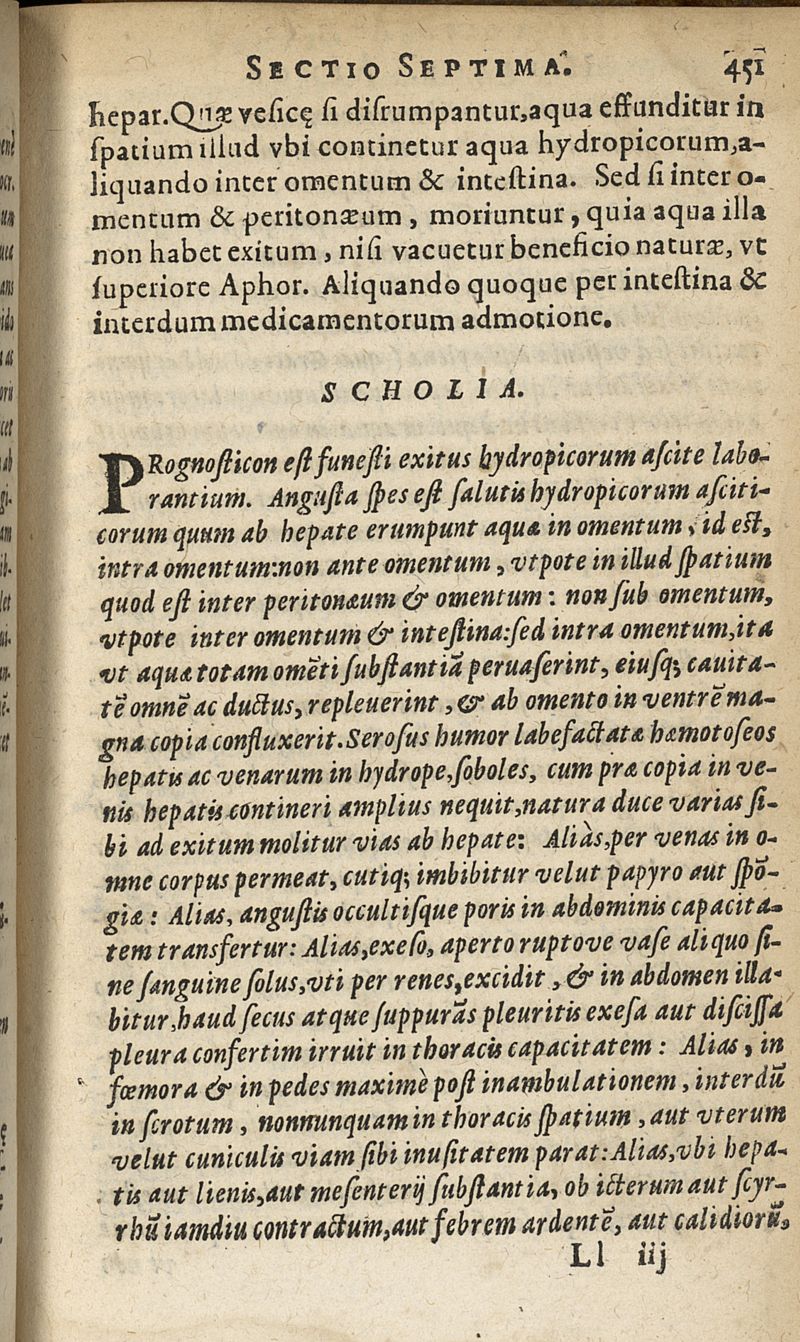 SECTIO SEPTIMA. 451
hepar. Quæ vesicę si disrumpantur, aqua effunditur in
spatium illud vbi continetur aqua hydropicorum, a-
liquando inter omentum & intestina. Sed si inter o-
mentum & peritonæum, moriuntur, quia aqua illa
non habet exitum, nisi vacuetur beneficio naturæ, vt
superiore Aphor. Aliquando quoque per intestina &
interdum medicamentorum admotione.
SCHOLIA.
PRognosticon est funesti exitus hydropicorum ascite labo-
rantium. Angusta spes est salutis hydropicorum asciti-
corum quum ab hepate erumpunt aquæ in omentum, id est,
intra omentum: non ante omentum, vtpote in illud spatium
quod est inter peritonæum & omentum: non sub omentum,
vtpote inter omentum & intestina: sed intra omentum, ita
vt aquæ totam omēti substantiā peruaserint, eiusq; cauita-
tē omnē ac ductus, repleuerint, & ab omento in ventrē ma-
gna copia confluxerit. Serosus humor labefactatæ hæmotoseos
hepatis ac venarum in hydrope, soboles, cum præ copia in ve-
nis hepatis contineri amplius nequit, natura duce varias si-
bi ad exitum molitur vias ab hepate: Aliàs, per venas in o-
mne corpus permeat, cutiq; imbibitur velut papyro aut spō-
giæ: Alias, angustis occultisque poris in abdominis capacita-
tem transfertur: Alias, exeso, aperto ruptove vase aliquo si-
ne sanguine solus, vti per renes, excidit, & in abdomen illa-
bitur, haud secus atque suppurās pleuritis exesa aut discissa
pleura confertim irruit in thoracis capacitatem: Alias, in
fœmora & in pedes maximè post inambulationem, interdū
in scrotum, nonnunquam in thoracis spatium, aut vterum
velut cuniculis viam sibi inusitatem parat: Alias, vbi hepa-
tis aut lienis, aut mesenterij substantia, ob icterum aut scyr-
rhū iamdiu contractum, aut febrem ardentē, aut calidiorū,
Ll iij